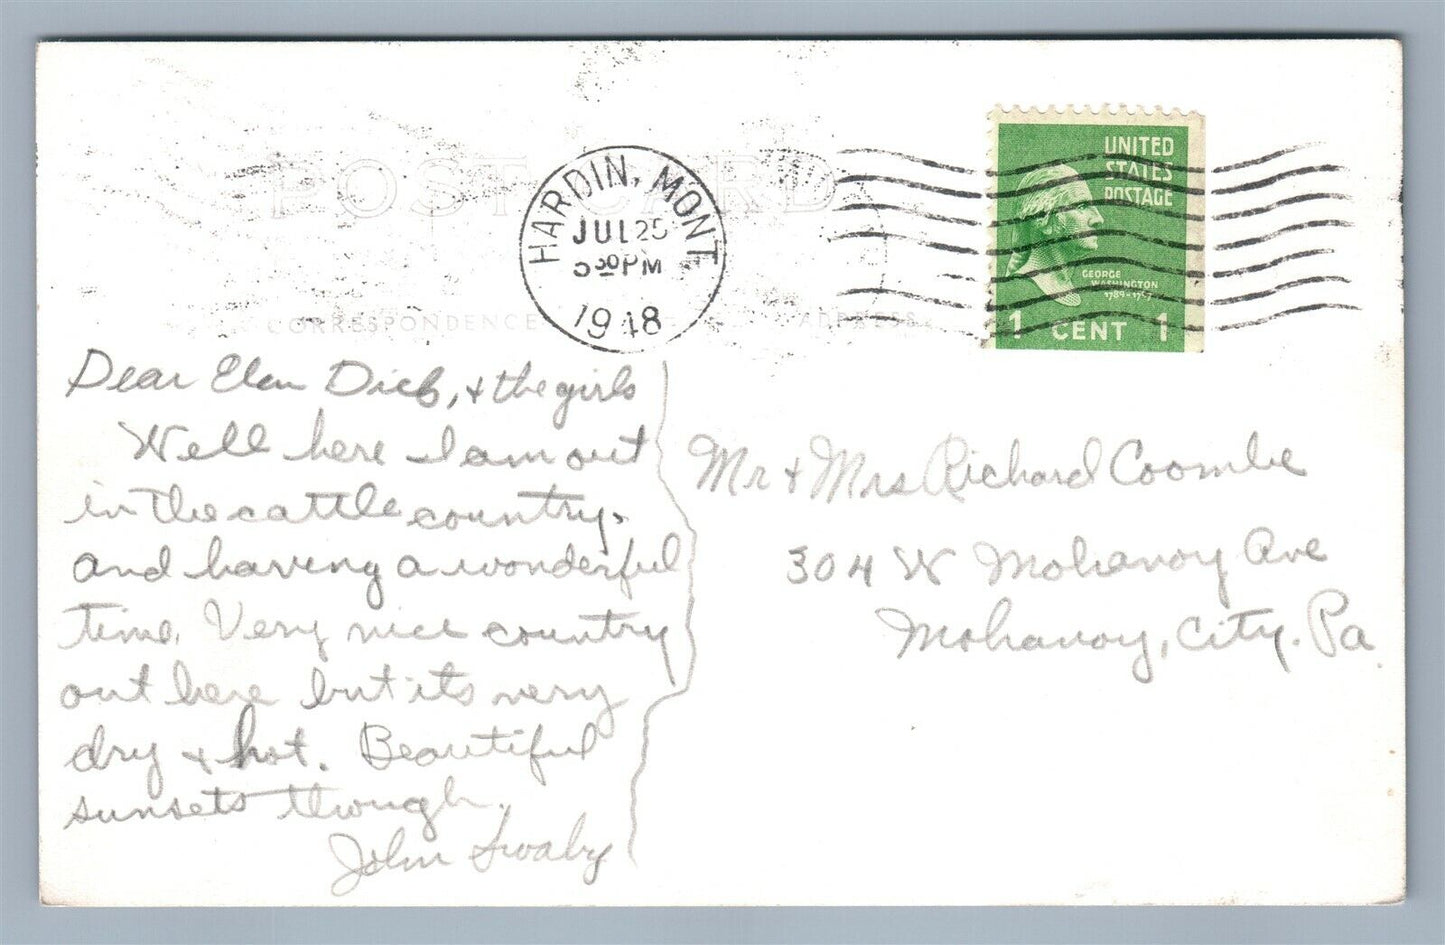 POST CARD
HARDIN, MONT.
JUL 25
5 30 PM
1948
UNITED
STATES
POSTAGE
GEORGE
WASHINGTON
1789-1797
1 CENT 1
CORRESPONDENCE
ADDRESS
Dear Elen Dick, + the girls
Well here I am out
in the cattle country,
and having a wonderful
time. Very nice country
out here but its very
dry + hot. Beautiful
sunsets though.
John Swaby
Mr + Mrs Richard Coombe
304 W Mohanoy Ave
Mohanoy, City. Pa